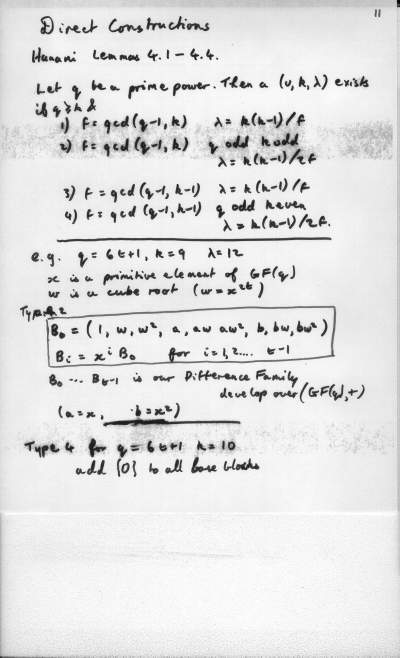 11
Direct Constructions
Hanani Lemmas 4.1 - 4.4.
Let q be a prime power. Then a (v, k, λ) exists
if q ≥ k &
1) f = gcd (q-1, k) λ = k(k-1)/f
2) f = gcd (q-1, k) q odd k odd
λ = k(k-1)/2f
3) f = gcd (q-1, k-1) λ = k(k-1)/f
4) f = gcd (q-1, k-1) q odd k even
λ = k(k-1)/2f.
e.g. q = 6t+1, k=9 λ=12
x is a primitive element of GF(q)
w is a cube root (w = x^{2t})
Type 2
B₀ = (1, w, w², a, aw aw², b, bw, bw²)
Bᵢ = xⁱ B₀ for i=1,2.... t-1
B₀ ... B_{t-1} is our Difference Family
develop over (GF(q),+)
(a=x, b=x²)
Type 4 for q = 6t+1 k=10
add {0} to all base blocks